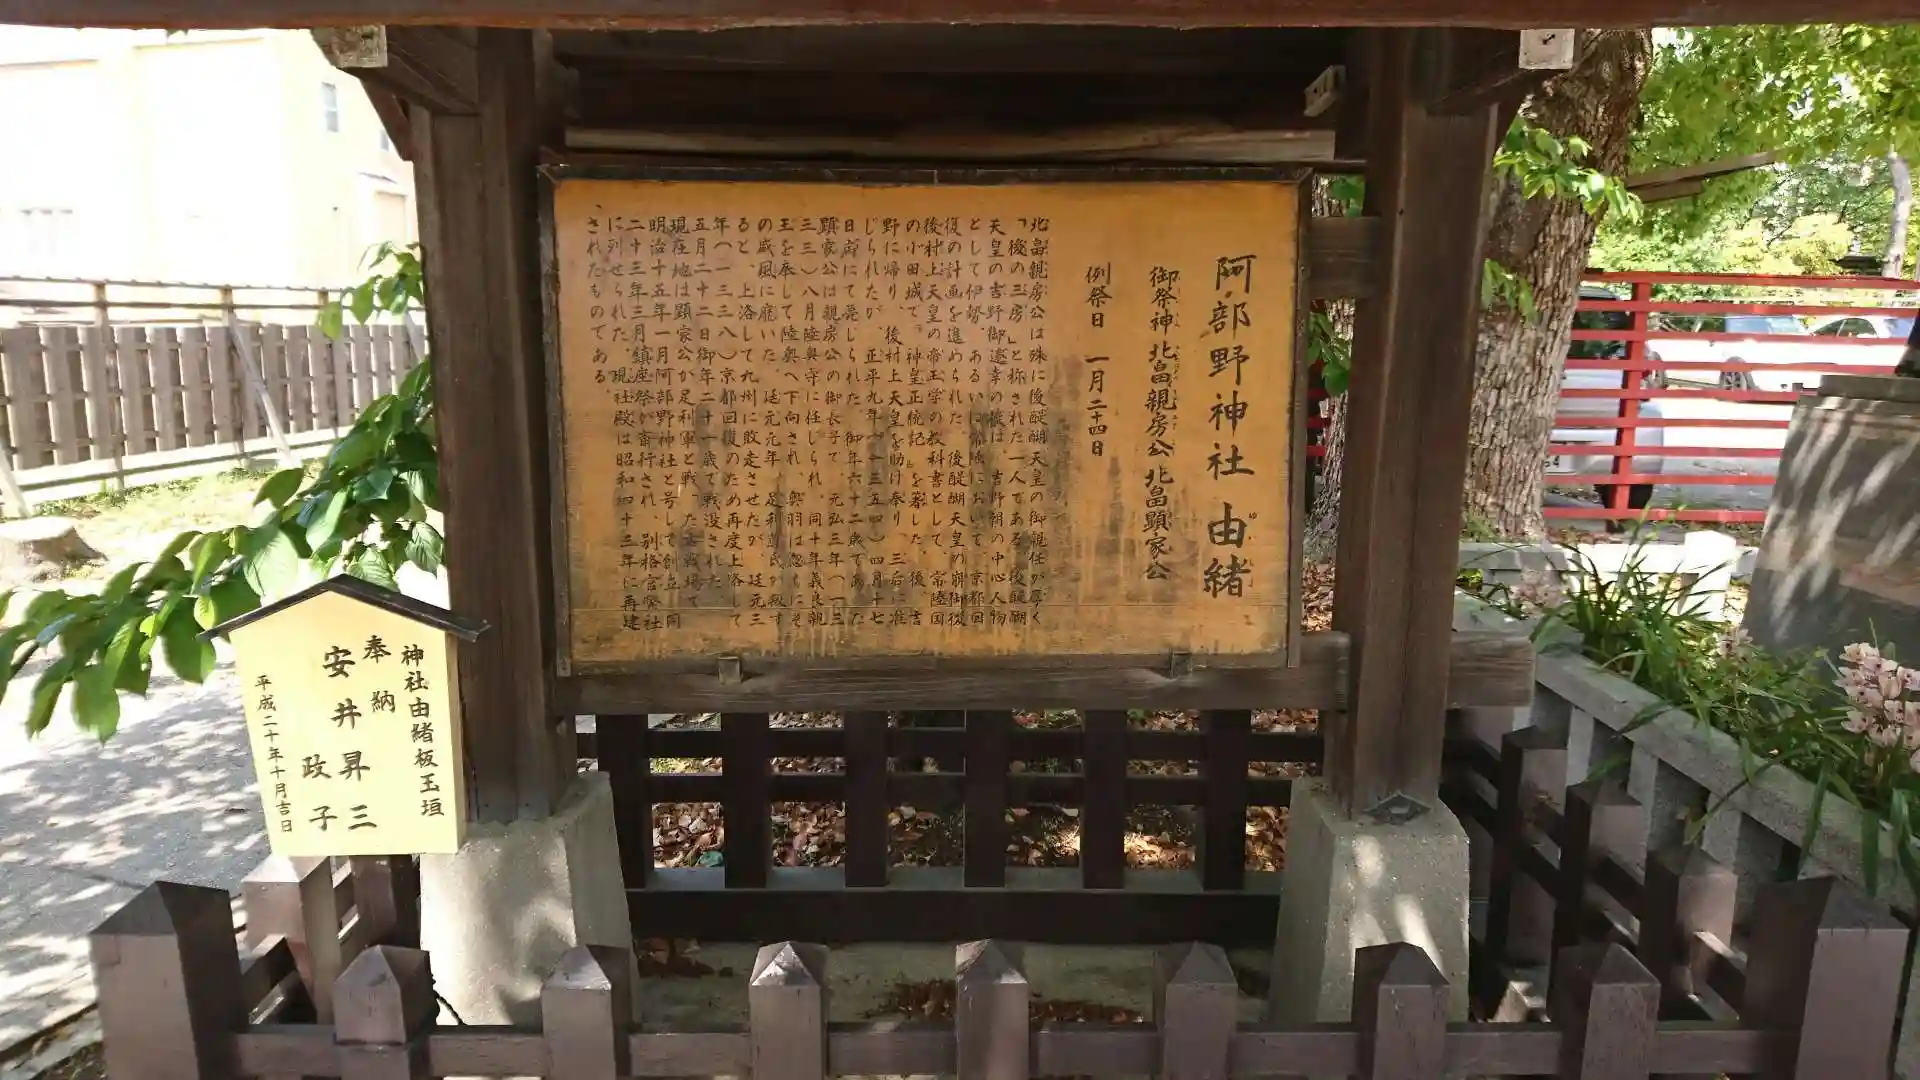 阿部野神社 由緒
ゆい
御祭神 北畠親房公 北畠顕家公
例祭日 一月二十四日
北畠親房公は殊に後醍醐天皇の御親任が厚く
「後の三房」と称された一人である。後醍醐
天皇の吉野御遷幸の後は、吉野朝の中心人物
として伊勢、あるいは常陸において、京都回
復の計画を進められた。後醍醐天皇の崩御後
後村上天皇の帝王学の教科書として、常陸国
の小田城で「神皇正統記」を著した。後、吉
野に帰り、後村上天皇を助け奉り、三后に准
じられたが、正平九年(一三五四)四月十七
日病にて薨じられた。御年六十二歳であった
顕家公は親房公の御長子で、元弘三年(一三
三三)八月陸奥守に任じられ、同十年義良親
王を奉じて陸奥へ下向され、奥羽は忽ちにそ
の威風に靡いた。延元元年、足利尊氏が叛す
ると、上洛して九州に敗走させたが、延元三
年(一三三八)京都回復のため再度上洛して
五月二十二日御年二十一歳で戦没された。
現在地は顕家公が足利軍と戦った古戦場で
明治十五年一月阿部野神社と号して創立、同
二十三年三月鎮座祭が斎行され、別格官幣社
に列せられた。現社殿は昭和四十三年に再建
されたものである。
神社由緒板玉垣
奉納
安井昇三
政子
平成二十年十月吉日